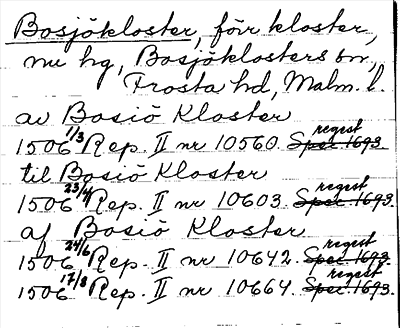 Bosjökloster, förr kloster,
nu hg, Bosjöklosters sn,
Frosta hd, Malm. l.
av Bosiö Kloster
1506 1/3 Rep. II nr 10560. Spec 1693. regest
til Bosiö Kloster
1506 23/4 Rep. II nr 10603. Spec 1693. regest
af Bosiö Kloster
1506 24/6 Rep. II nr 10642. Spec 1693. regest
1506 17/8 Rep. II nr 10664. Spec 1693. regest